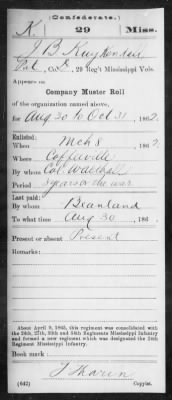 (Confederate.)
K. 29 Miss.
J B Kuykendall
Pvt, Co. K, 29 Reg't Mississippi Vols.
Appears on
Company Muster Roll
of the organization named above,
for Aug 30 to Oct 31, 1862.
Enlisted:
When Mch 8, 1862.
Where Coffeeville
By whom Col. Walthall
Period 3 years or the war
Last paid:
By whom Blanland
To what time Aug 30, 186
Present or absent Present
Remarks:
About April 9, 1865, this regiment was consolidated with
the 24th, 27th, 30th and 34th Regiments Mississippi Infantry
and formed a new regiment which was designated the 24th
Regiment Mississippi Infantry.
Book mark:
(642) Copyist.